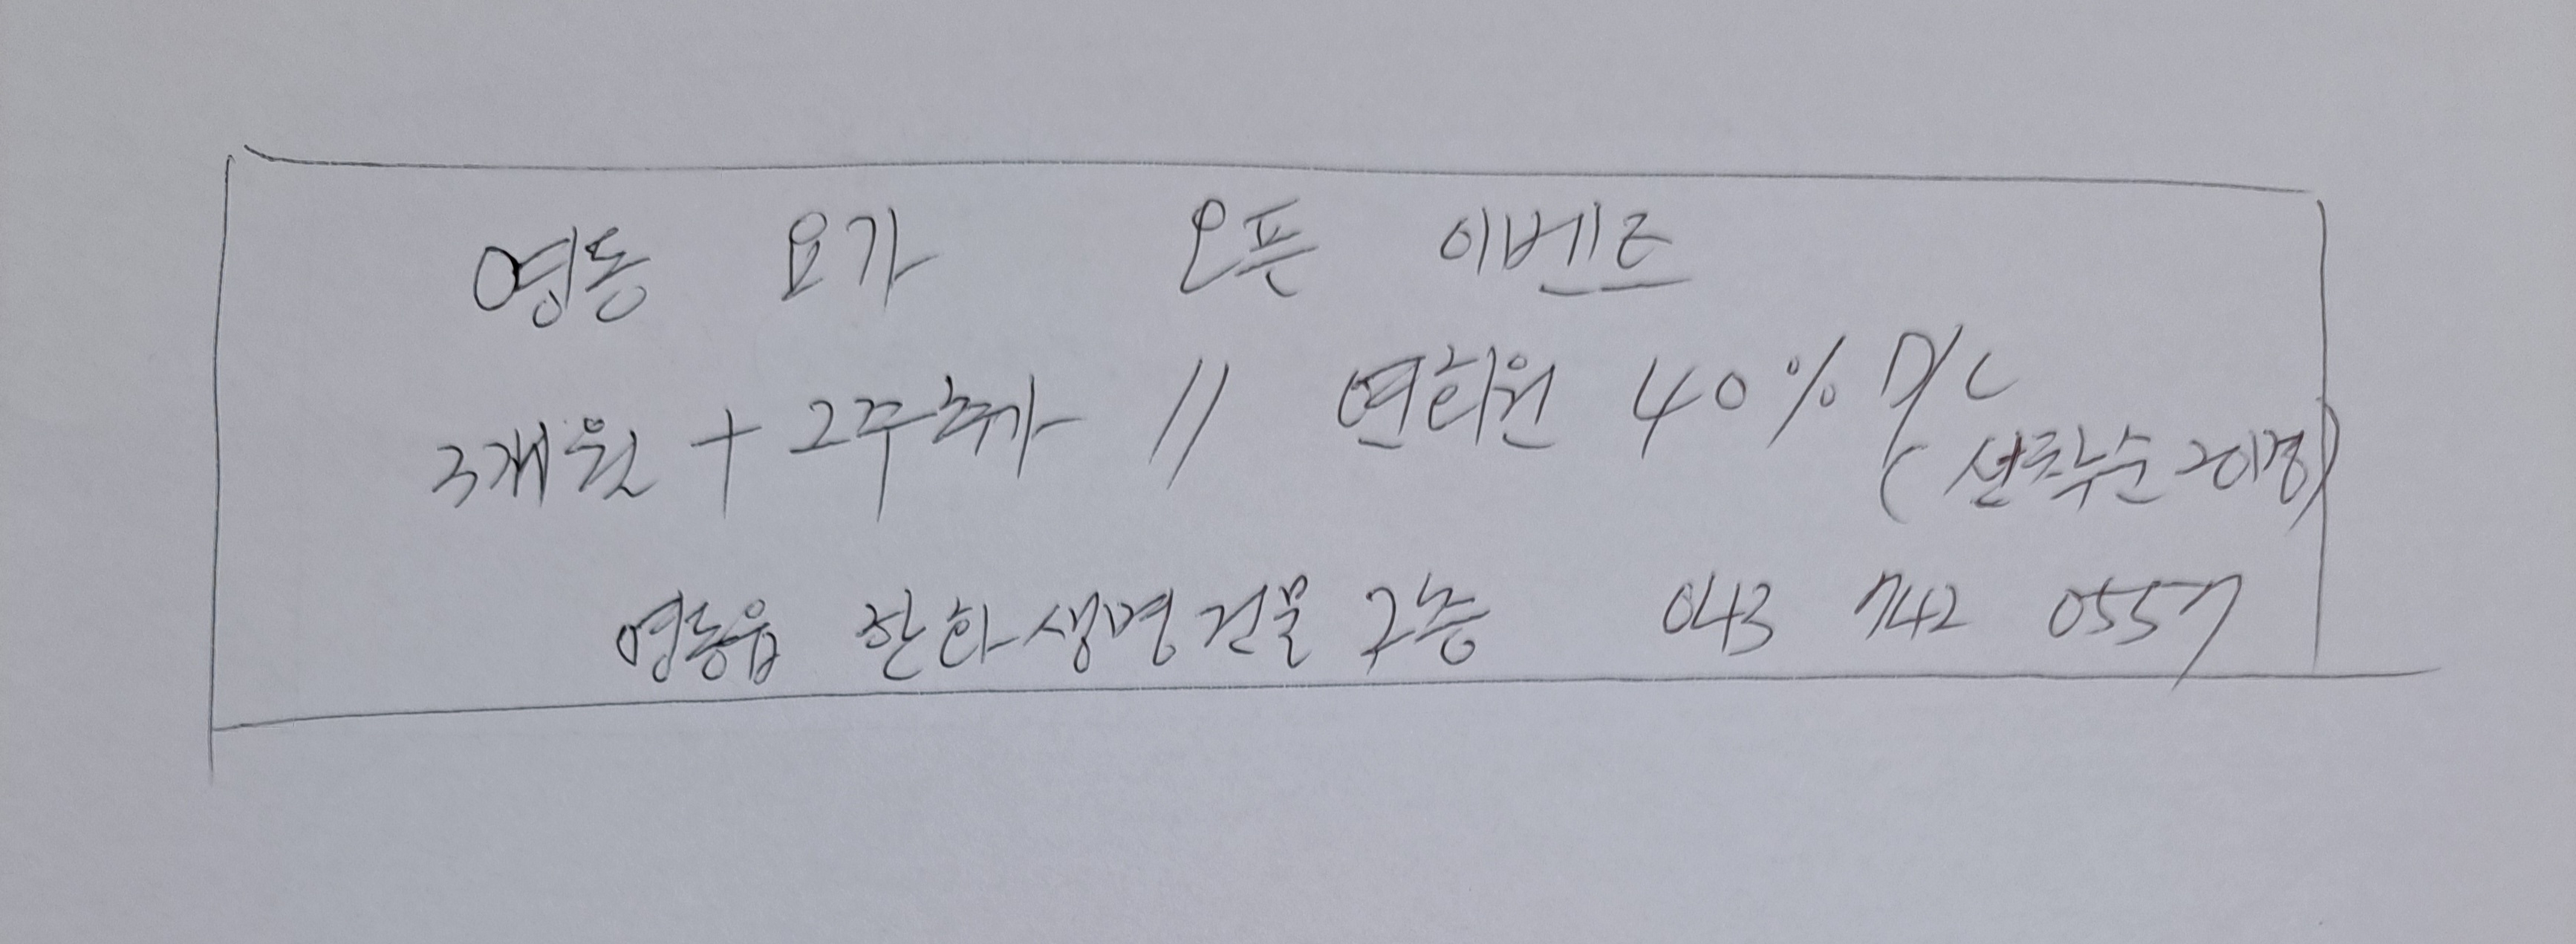 영동 요가 오픈 이벤트
3개월 + 2주추가 // 연회원 40% D/C
(선착순 20명)
영동읍 한화생명건물 2층 043 742 0557